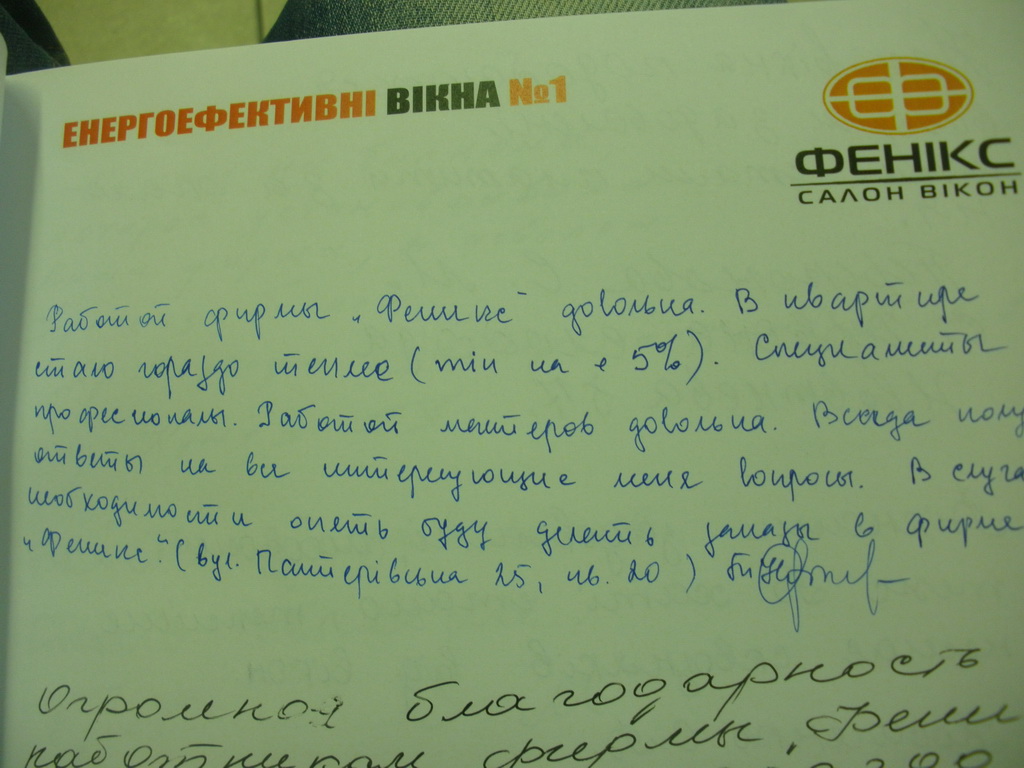 ЕНЕРГОЕФЕКТИВНІ ВІКНА №1
ФЕНІКС
САЛОН ВІКОН
Работой фирмы „Феникс" довольна. В квартире
стало гораздо теплее (min на 5%). Специалисты
професионалы. Работой мастеров довольна. Всегда полу
ответы на все интересующие меня вопросы. В случа
необходимости опять буду делать заказы в фирме
„Феникс". (вул. 25, кв. 20)
Огромная благодарность
работникам фирмы „Фени